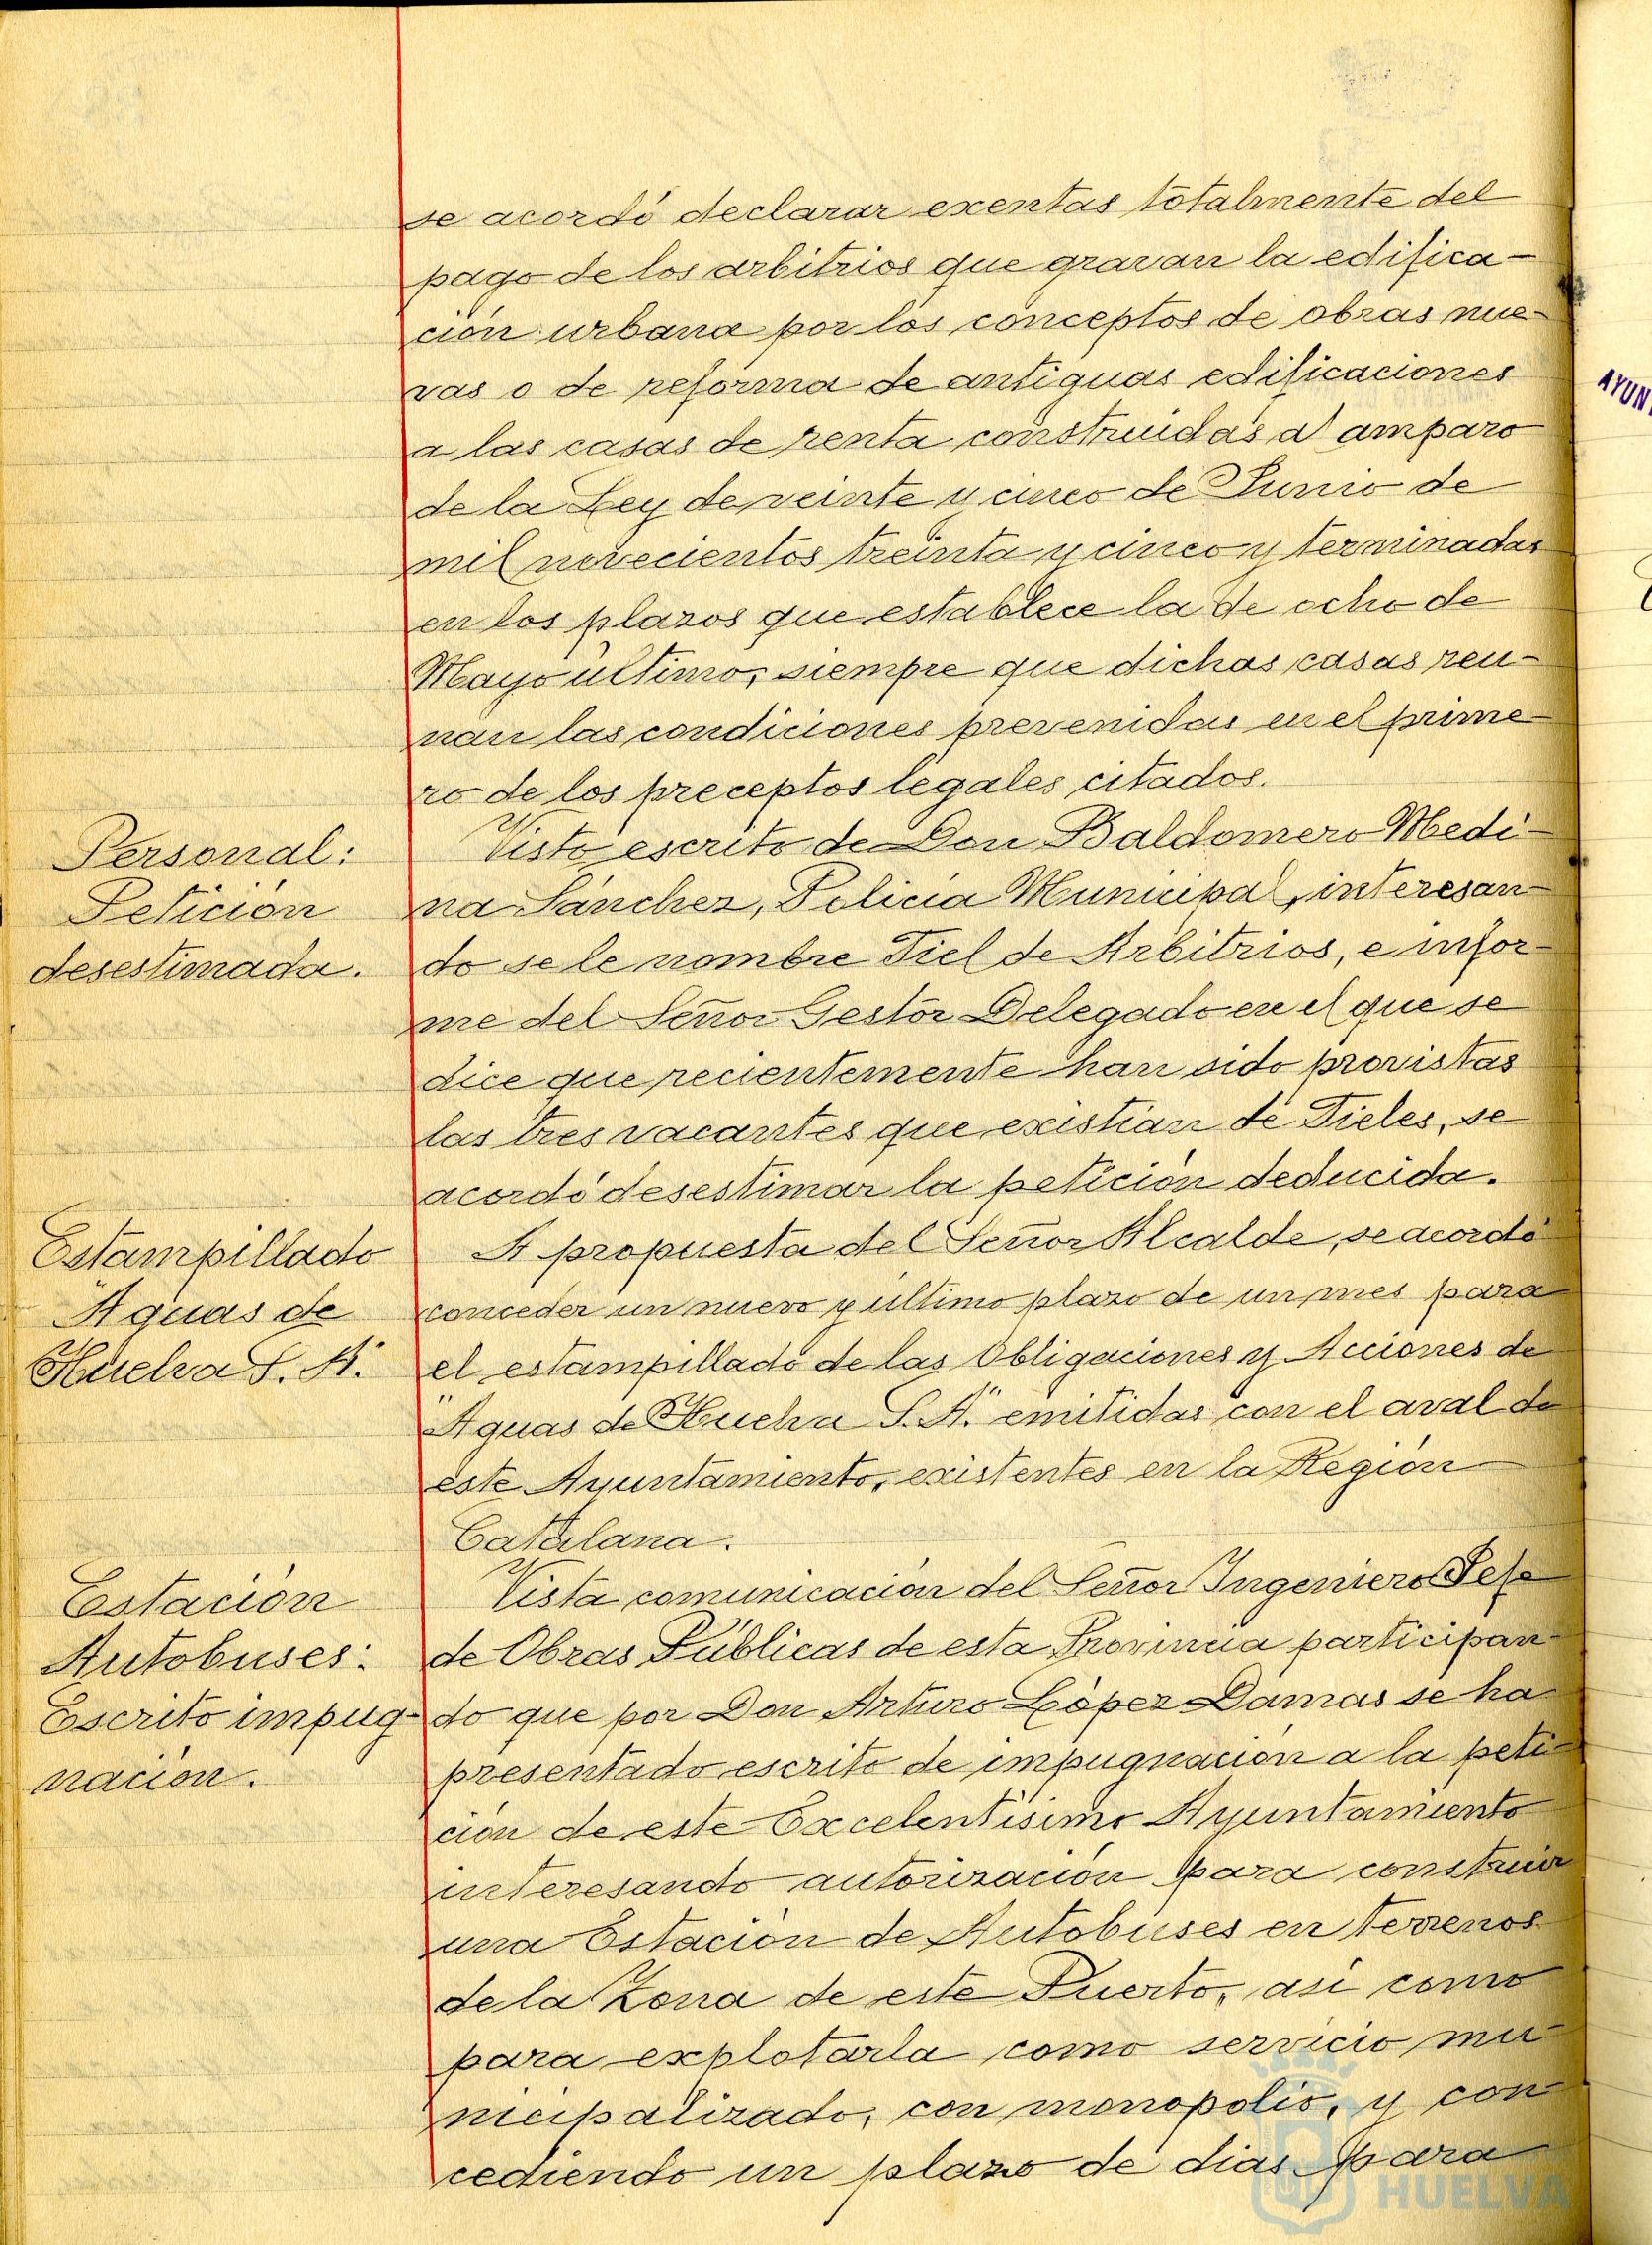 se acordó declarar exentas totalmente del
pago de los arbitrios que gravan la edifica-
ción urbana por los conceptos de obras nue-
vas o de reforma de antiguas edificaciones
a las casas de renta construidas al amparo
de la Ley de veinte y cinco de Junio de
mil novecientos treinta y cinco y terminadas
en los plazos que establece la de ocho de
Mayo último, siempre que dichas casas reu-
nan las condiciones prevenidas en el prime-
ro de los preceptos legales citados.
Personal:
Petición
desestimada.
Visto escrito de Don Baldomero Medi-
na Sánchez, Policía Municipal, interesan-
do se le nombre Fiel de Arbitrios, e infor-
me del Señor Gestor Delegado en el que se
dice que recientemente han sido provistas
las tres vacantes que existian de Fieles, se
acordó desestimar la petición deducida.
Estampillado
"Aguas de
Huelva S. A."
A propuesta del Señor Alcalde, se acordó
conceder un nuevo y último plazo de un mes para
el estampillado de las Obligaciones y Acciones de
"Aguas de Huelva S. A." emitidas con el aval de
este Ayuntamiento, existentes en la Región
Catalana.
Estación
Autobuses:
Escrito impug-
nación.
Vista comunicación del Señor Ingeniero Jefe
de Obras Públicas de esta Provincia participan-
do que por Don Arturo López Damas se ha
presentado escrito de impugnación a la peti-
ción de este Excelentísimo Ayuntamiento
interesando autorización para construir
una Estación de Autobuses en terrenos
de la Zona de este Puerto, así como
para explotarla como servicio mu-
nicipalizado, con monopolio, y con-
cediendo un plazo de dias para
AYUN
HUELVA